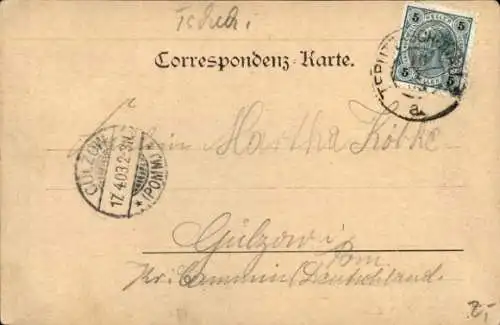 Tschech.
5 HELLER 5
TEPLITZ
a
Correspondenz-Karte.
Fräulein Martha Köbke
GÜLZOW
17.4.03.2-3N.
*(POMM.)*
Gülzow i/Pom
Kr. Cammin/Deutschland.